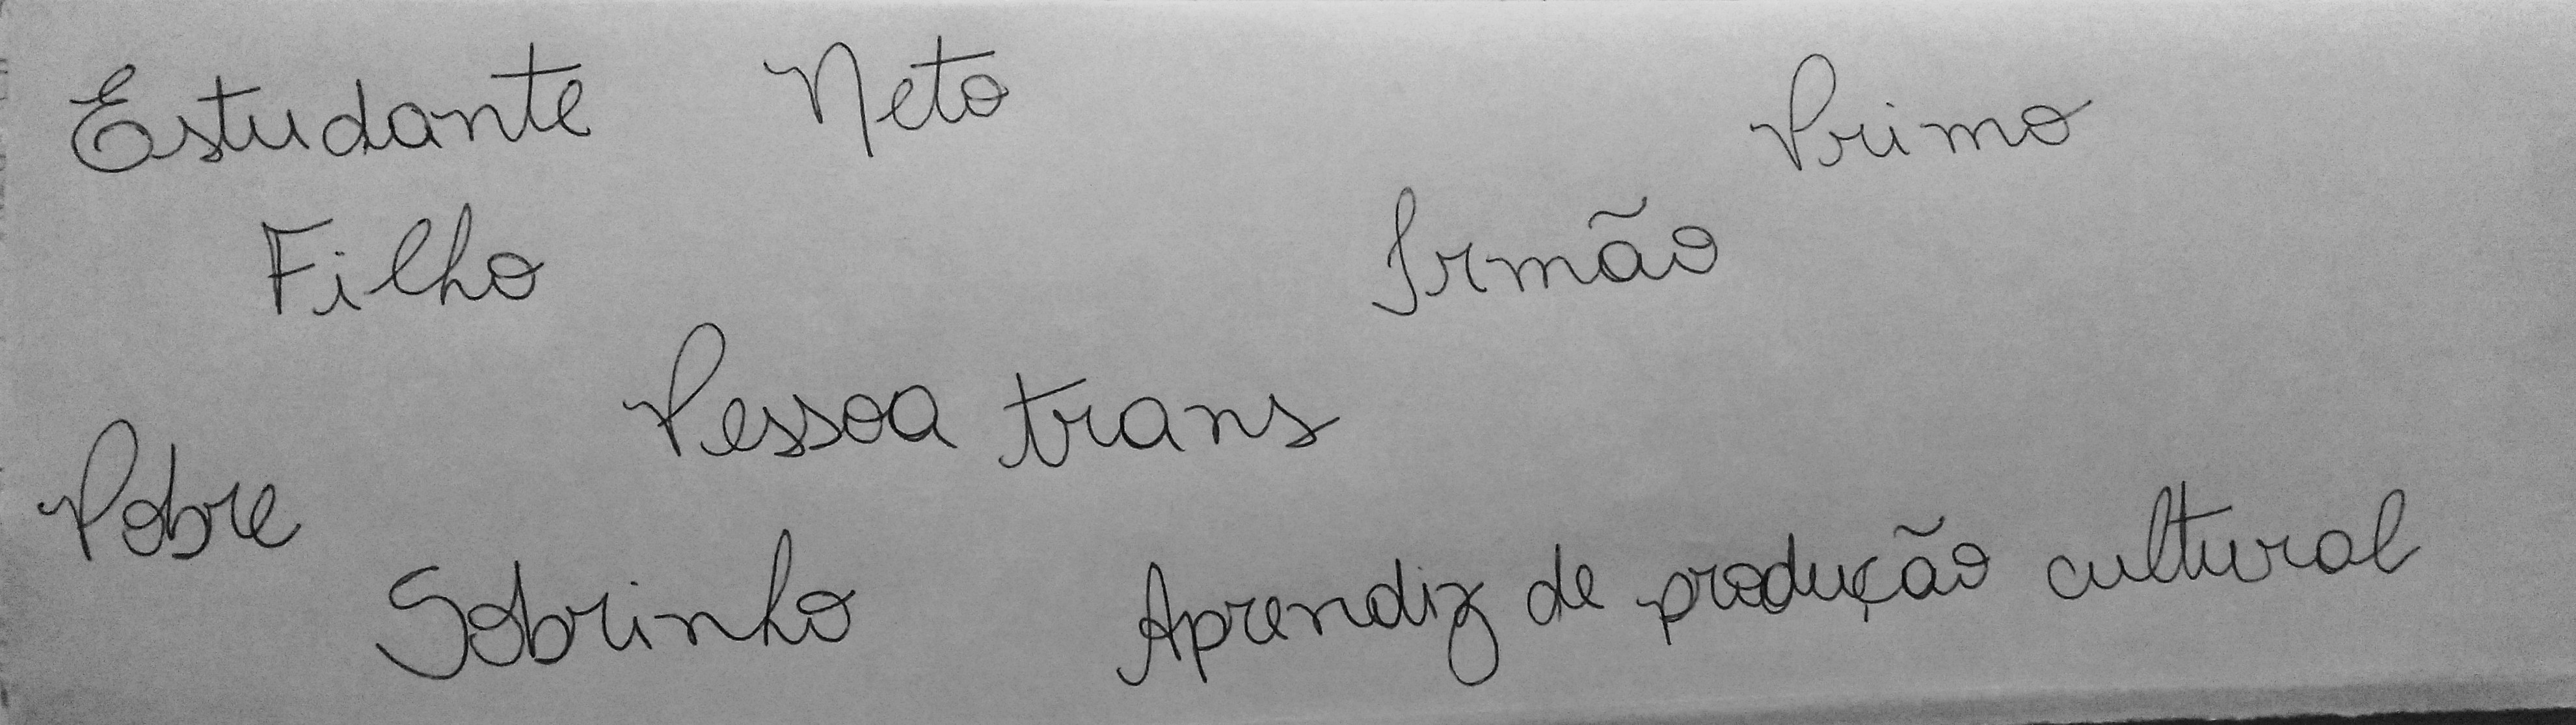 Estudante Neto Primo
Filho Irmão
Pessoa trans
Pobre
Sobrinho Aprendiz de produção cultural